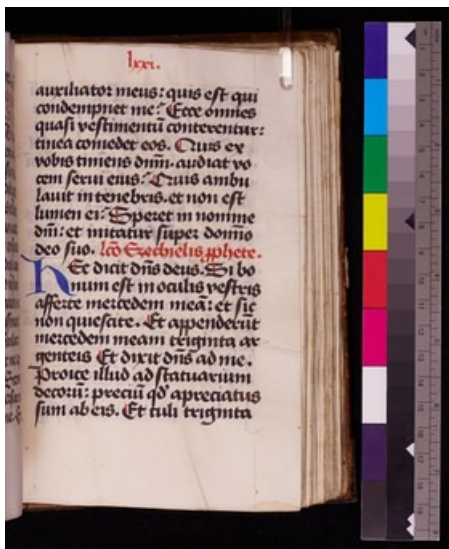 lxxi.
auxiliator meus: quis est qui
condempnet me? Ecce omnes
quasi vestimentū conterentur:
tinea comedet eos. Quis ex
vobis timens dnm̄. audiat vo
cem serui eius? Quis ambu
lauit in tenebris. et non est
lumen ei? Speret in nomine
dn̄i: et innitatur super domino
deo suo. lcō Ezechielis ꝓphete.
Hec dicit dn̄s deus. Si bo
num est in oculis vestris
afferte mercedem meā: et sic
non quiescite. Et appenderūt
mercedem meam triginta ar
genteis Et dixit dn̄s ad me.
Proice illud ad statuarium
decorū: preciū qđ apreciatus
sum ab eis. Et tuli triginta